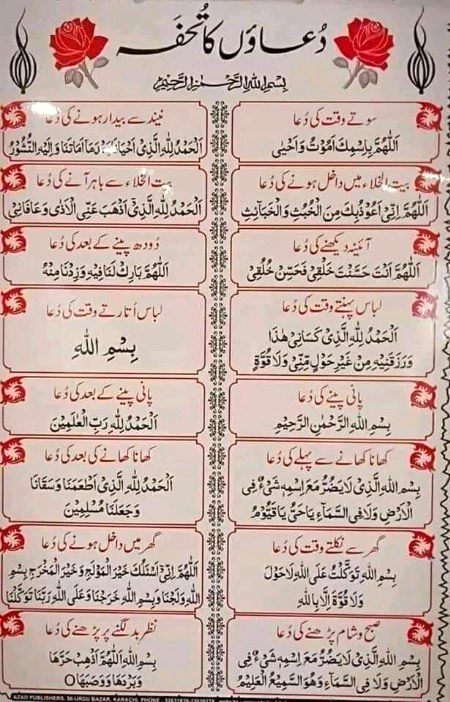 دُعاؤں کا تُحفَہ
بِسْمِ اللهِ الرَّحْمٰنِ الرَّحِيْمِ
سوتے وقت کی دُعا
اَللّٰهُمَّ بِاسْمِكَ اَمُوْتُ وَاَحْيٰى
نیند سے بیدار ہونے کی دُعا
اَلْحَمْدُ لِلّٰهِ الَّذِیْ اَحْيَانَا بَعْدَ مَا اَمَاتَنَا وَاِلَيْهِ النُّشُوْرُ
بیت الخلاء میں داخل ہونے کی دُعا
اَللّٰهُمَّ اِنِّیْ اَعُوْذُبِكَ مِنَ الْخُبُثِ وَالْخَبَائِثِ
بیت الخلاء سے باہر آنے کی دُعا
اَلْحَمْدُ لِلّٰهِ الَّذِیْ اَذْهَبَ عَنِّی الْاَذٰی وَعَافَانِیْ
آئینہ دیکھنے کی دُعا
اَللّٰهُمَّ اَنْتَ حَسَّنْتَ خَلْقِیْ فَحَسِّنْ خُلُقِیْ
دُودھ پینے کے بعد کی دُعا
اَللّٰهُمَّ بَارِكْ لَنَا فِيْهِ وَزِدْنَا مِنْهُ
لباس پہنتے وقت کی دُعا
اَلْحَمْدُ لِلّٰهِ الَّذِیْ كَسَانِیْ هٰذَا
وَرَزَقَنِيْهِ مِنْ غَيْرِ حَوْلٍ مِّنِّیْ وَلَا قُوَّةٍ
لباس اُتارتے وقت کی دُعا
بِسْمِ اللهِ
پانی پینے کی دُعا
بِسْمِ اللهِ الرَّحْمٰنِ الرَّحِيْمِ
پانی پینے کے بعد کی دُعا
اَلْحَمْدُ لِلّٰهِ رَبِّ الْعٰلَمِيْنَ
کھانا کھانے سے پہلے کی دُعا
بِسْمِ اللهِ الَّذِیْ لَا يَضُرُّ مَعَ اسْمِهٖ شَیْءٌ فِی
الْاَرْضِ وَلَا فِی السَّمَآءِ يَا حَیُّ يَا قَيُّوْمُ
کھانا کھانے کے بعد کی دُعا
اَلْحَمْدُ لِلّٰهِ الَّذِیْ اَطْعَمَنَا وَسَقَانَا
وَجَعَلَنَا مُسْلِمِيْنَ
گھر سے نکلتے وقت کی دُعا
بِسْمِ اللهِ تَوَكَّلْتُ عَلَى اللهِ لَا حَوْلَ
وَلَا قُوَّةَ اِلَّا بِاللهِ
گھر میں داخل ہونے کی دُعا
اَللّٰهُمَّ اِنِّیْ اَسْئَلُكَ خَيْرَ الْمَوْلَجِ وَخَيْرَ الْمَخْرَجِ بِسْمِ
اللهِ وَلَجْنَا وَبِسْمِ اللهِ خَرَجْنَا وَعَلَى اللهِ رَبِّنَا تَوَكَّلْنَا
صبح و شام پڑھنے کی دُعا
بِسْمِ اللهِ الَّذِیْ لَا يَضُرُّ مَعَ اسْمِهٖ شَیْءٌ فِی
الْاَرْضِ وَلَا فِی السَّمَآءِ وَهُوَ السَّمِيْعُ الْعَلِيْمُ
نظرِ بد لگنے پر پڑھنے کی دُعا
بِسْمِ اللهِ اَللّٰهُمَّ اَذْهِبْ حَرَّهَا
وَبَرْدَهَا وَوَصَبَهَا
AZAD PUBLISHERS. 56-URDU BAZAR, KARACHI. PHONE